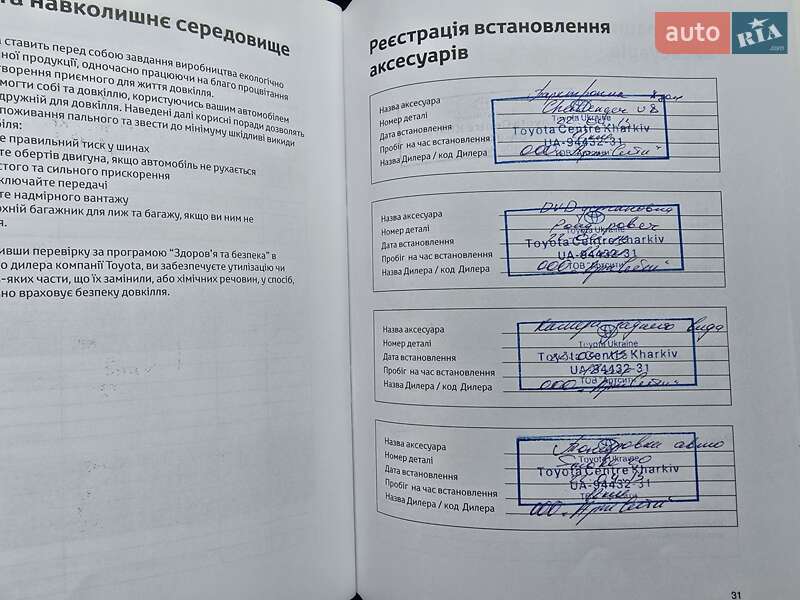 та навколишнє середовище
ставить перед собою завдання виробництва екологічно
ної продукції, одночасно працюючи на благо процвітання
творення приємного для життя довкілля.
могти собі та довкіллю, користуючись вашим автомобілем
дружній для довкілля. Наведені далі корисні поради дозволять
поживання пального та звести до мінімуму шкідливі викиди
біля:
е правильний тиск у шинах
те обертів двигуна, якщо автомобіль не рухається
стого та сильного прискорення
ключайте передачі
те надмірного вантажу
рхній багажник для лиж та багажу, якщо ви ним не
я.
ивши перевірку за програмою “Здоров'я та безпека” в
о дилера компанії Toyota, ви забезпечуєте утилізацію чи
-яких части, що їх замінили, або хімічних речовин, у спосіб,
но враховує безпеку довкілля.
Реєстрація встановлення
аксесуарів
auto RIA .com
Назва аксесуара
Номер деталі Challenger
Дата встановлення Toyota Ukraine
Пробіг на час встановлення Toyota Centre Kharkiv
Назва Дилера / код Дилера UA-94432-31
ООО „АртСити"
Назва аксесуара DVD установка
Номер деталі
Дата встановлення Toyota Ukraine
Пробіг на час встановлення Toyota Centre Kharkiv
Назва Дилера / код Дилера UA-94432-31
ООО „АртСити" ТОВ
Назва аксесуара Камера заднего вида
Номер деталі Toyota Ukraine
Дата встановлення Toyota Centre Kharkiv
Пробіг на час встановлення UA-94432-31
Назва Дилера / код Дилера ООО „АртСити" ТОВ
Назва аксесуара Тонировка авто
Номер деталі Toyota Ukraine
Дата встановлення Toyota Centre Kharkiv
Пробіг на час встановлення UA-94432-31
Назва Дилера / код Дилера ООО „АртСити"
31